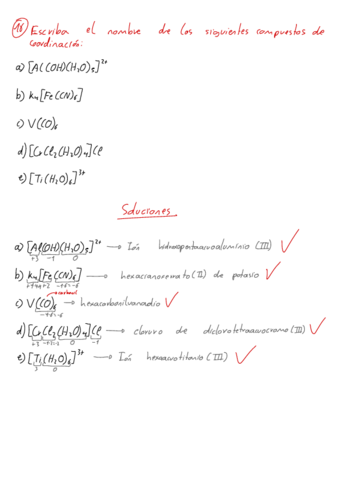 18 Escriba el nombre de los siguientes compuestos de
coordinación:
a) [Al(OH)(H₂O)₅]²⁺
b) K₄[Fe(CN)₆]
c) V(CO)₆
d) [CrCl₂(H₂O)₄]Cl
e) [Ti(H₂O)₆]³⁺
Soluciones
a) [Al(OH)(H₂O)₅]²⁺ → Ión hidroxopentaacuoaluminio (III) ✓
+3 -1 0
b) K₄[Fe(CN)₆] → hexacianoferrato (II) de potasio ✓
c) V(CO)₆ → hexacarbonilvanadio ✓
d) [CrCl₂(H₂O)₄]Cl → cloruro de diclorotetraacuocromo (III) ✓
e) [Ti(H₂O)₆]³⁺ → Ión hexaacuotitanio (III) ✓
3 0